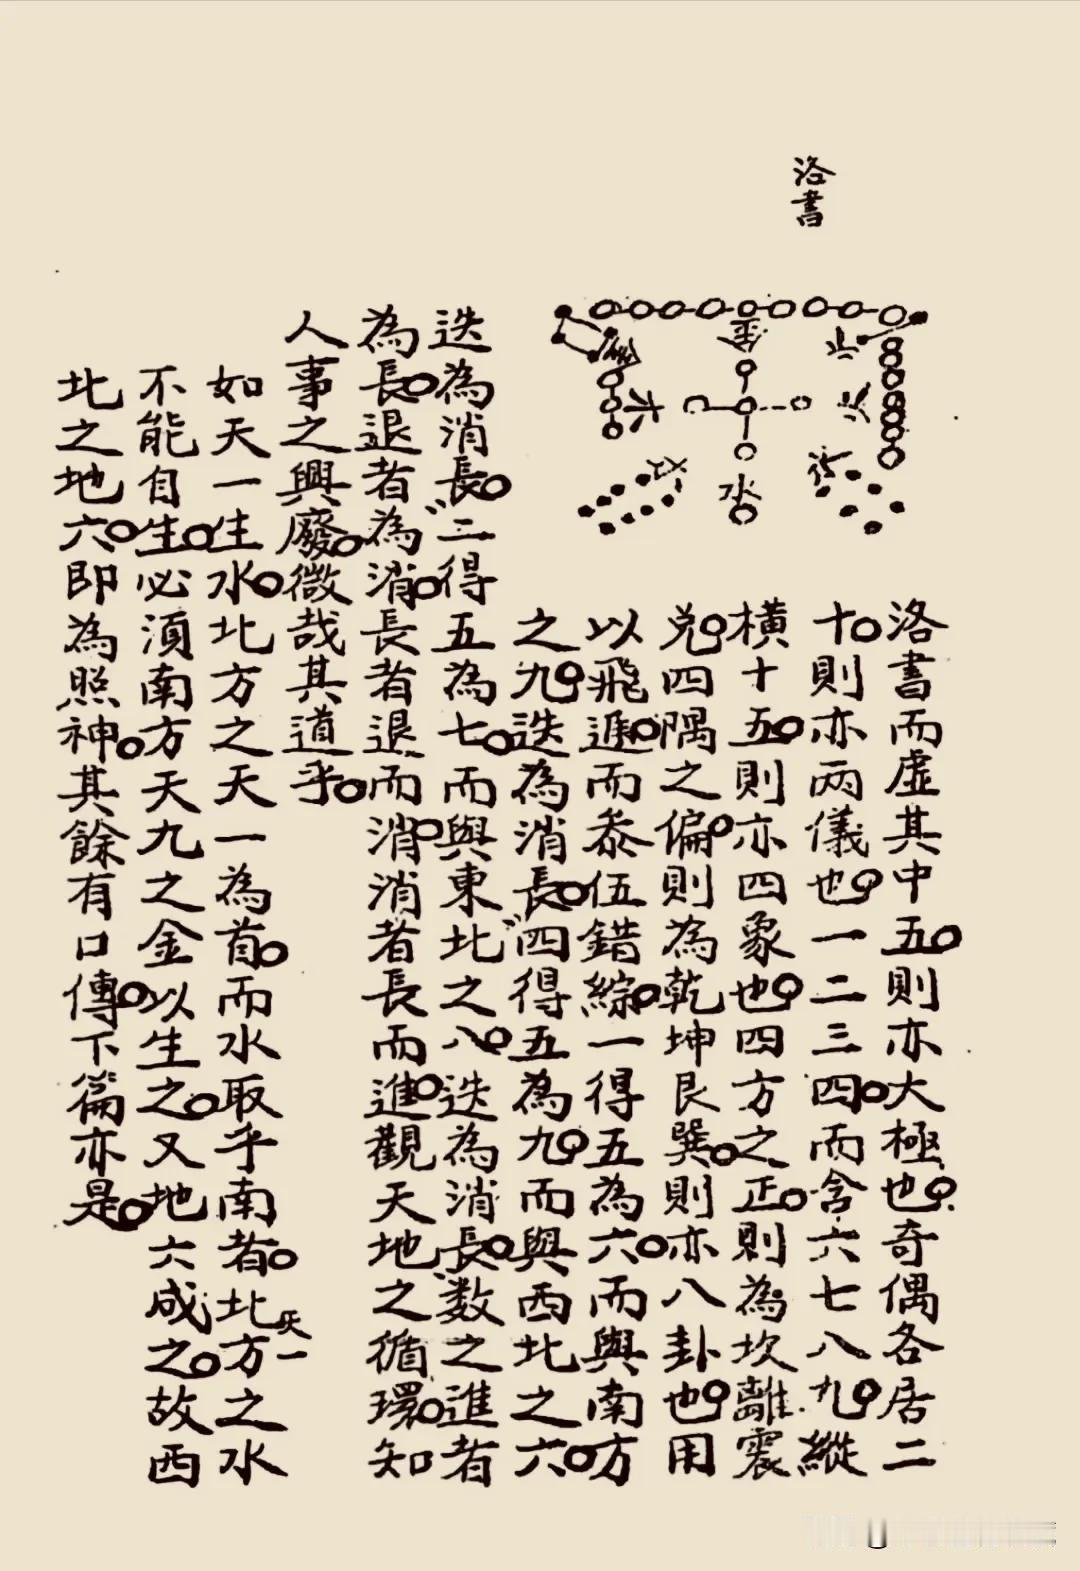 洛書
金
木
水
洛書而虛其中五。則亦大極也。奇偶各居二
十。則亦兩儀也。一二三四。而含六七八九。縱
橫十五。則亦四象也。四方之正。則為坎離震
兌。四隅之偏。則為乾坤艮巽。則亦八卦也。用
以飛。而叅伍錯綜。一得五為六。而與南方
之九。迭為消長。四得五為九。而與西北之六。
迭為消長。二得五為七。而與東北之八。迭為消長。數之進者
為長。退者為消。長者退而消。消者長而進。觀天地之循環。知
人事之興廢。微哉其道乎。
如天一生水。北方之天一為首。而水取乎南者。北方之水
天一
不能自生。必須南方天九之金以生之。又地六成之。故西
北之地六。即為照神。其餘有口傳。下篇亦是。